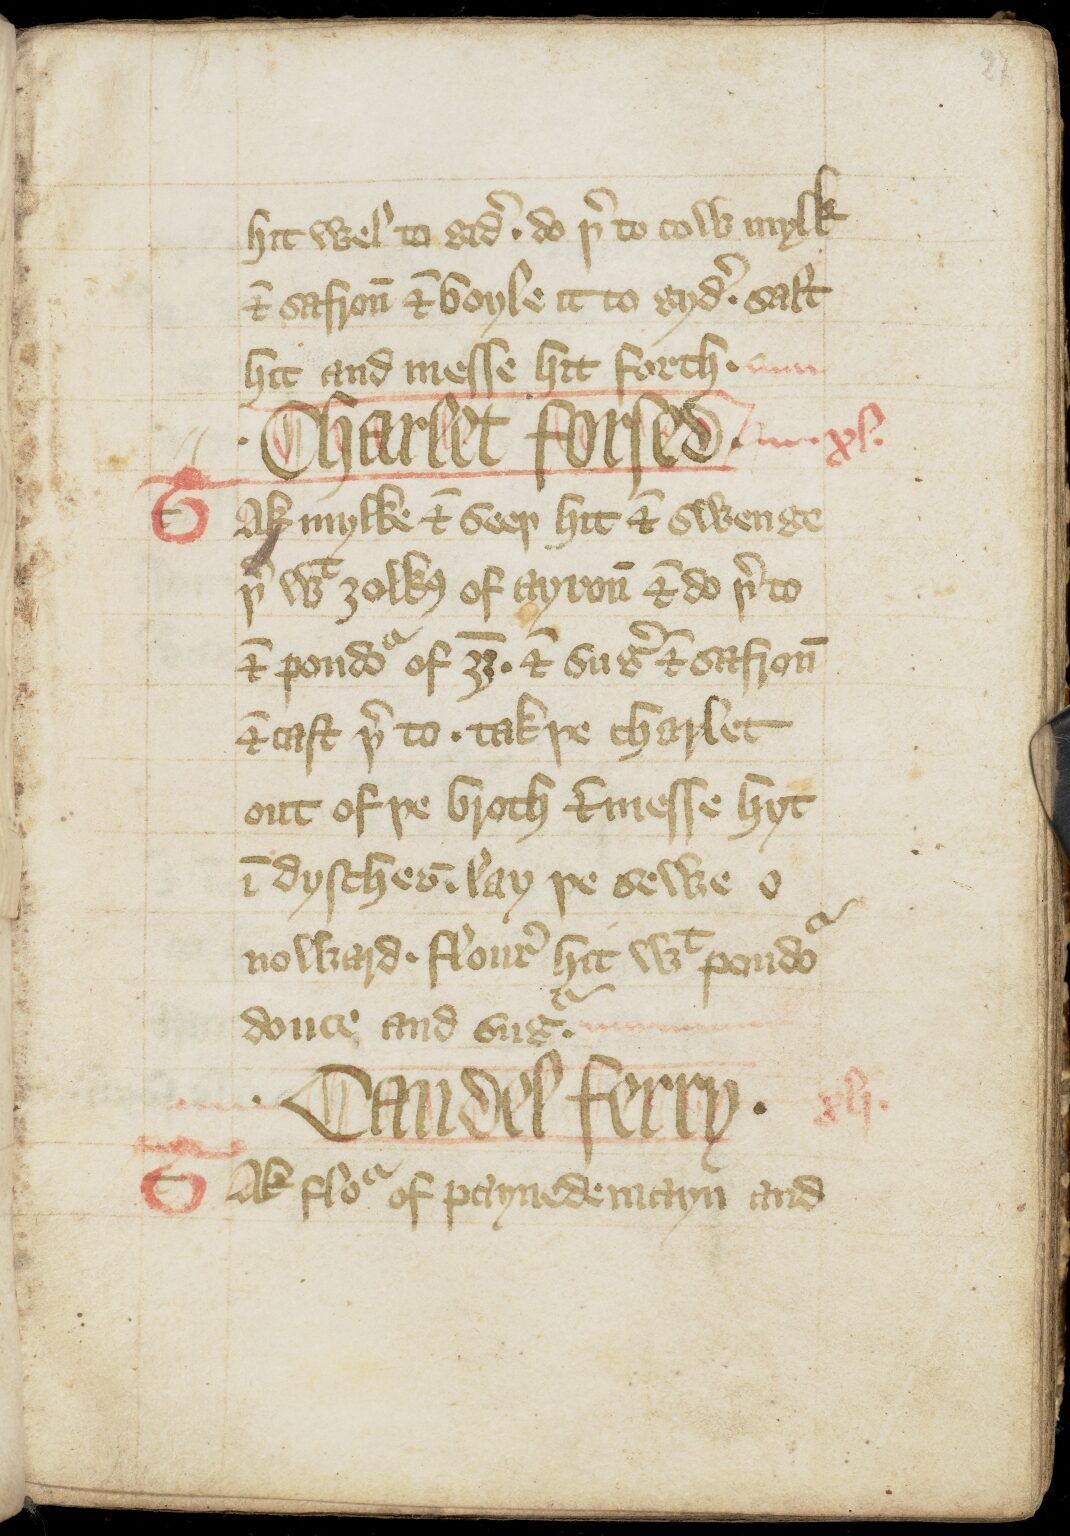 27
hit wel to gid̄. do þ̄ to cow mylk
⁊ safron̄ ⁊ boyle it to gyd̄. salt
hit and messe hit forth.
.Charlet forsed. xl.
TAk mylke ⁊ seeþ hit ⁊ swenge
þ̄ wᵗ ȝolkꝯ of ayron̄ ⁊ do þ̄ to
⁊ poudoᵃ of ȝȝ̄. ⁊ suḡ ⁊ safron̄
⁊ cast þ̄ to. tak þe charlet
out of þe broth ⁊ messe hyt
ī dysches̄. lay þe sewe o
noward. flour̄ hit wᵗ poudoᵃ
douce and sugᵃ.
. Caudel ferry. xlj.
TAk floᵃ of paynedemayn and